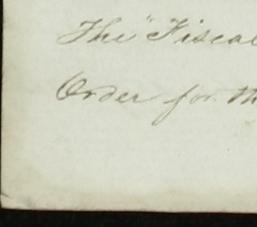 The "Fiscal
Order for th